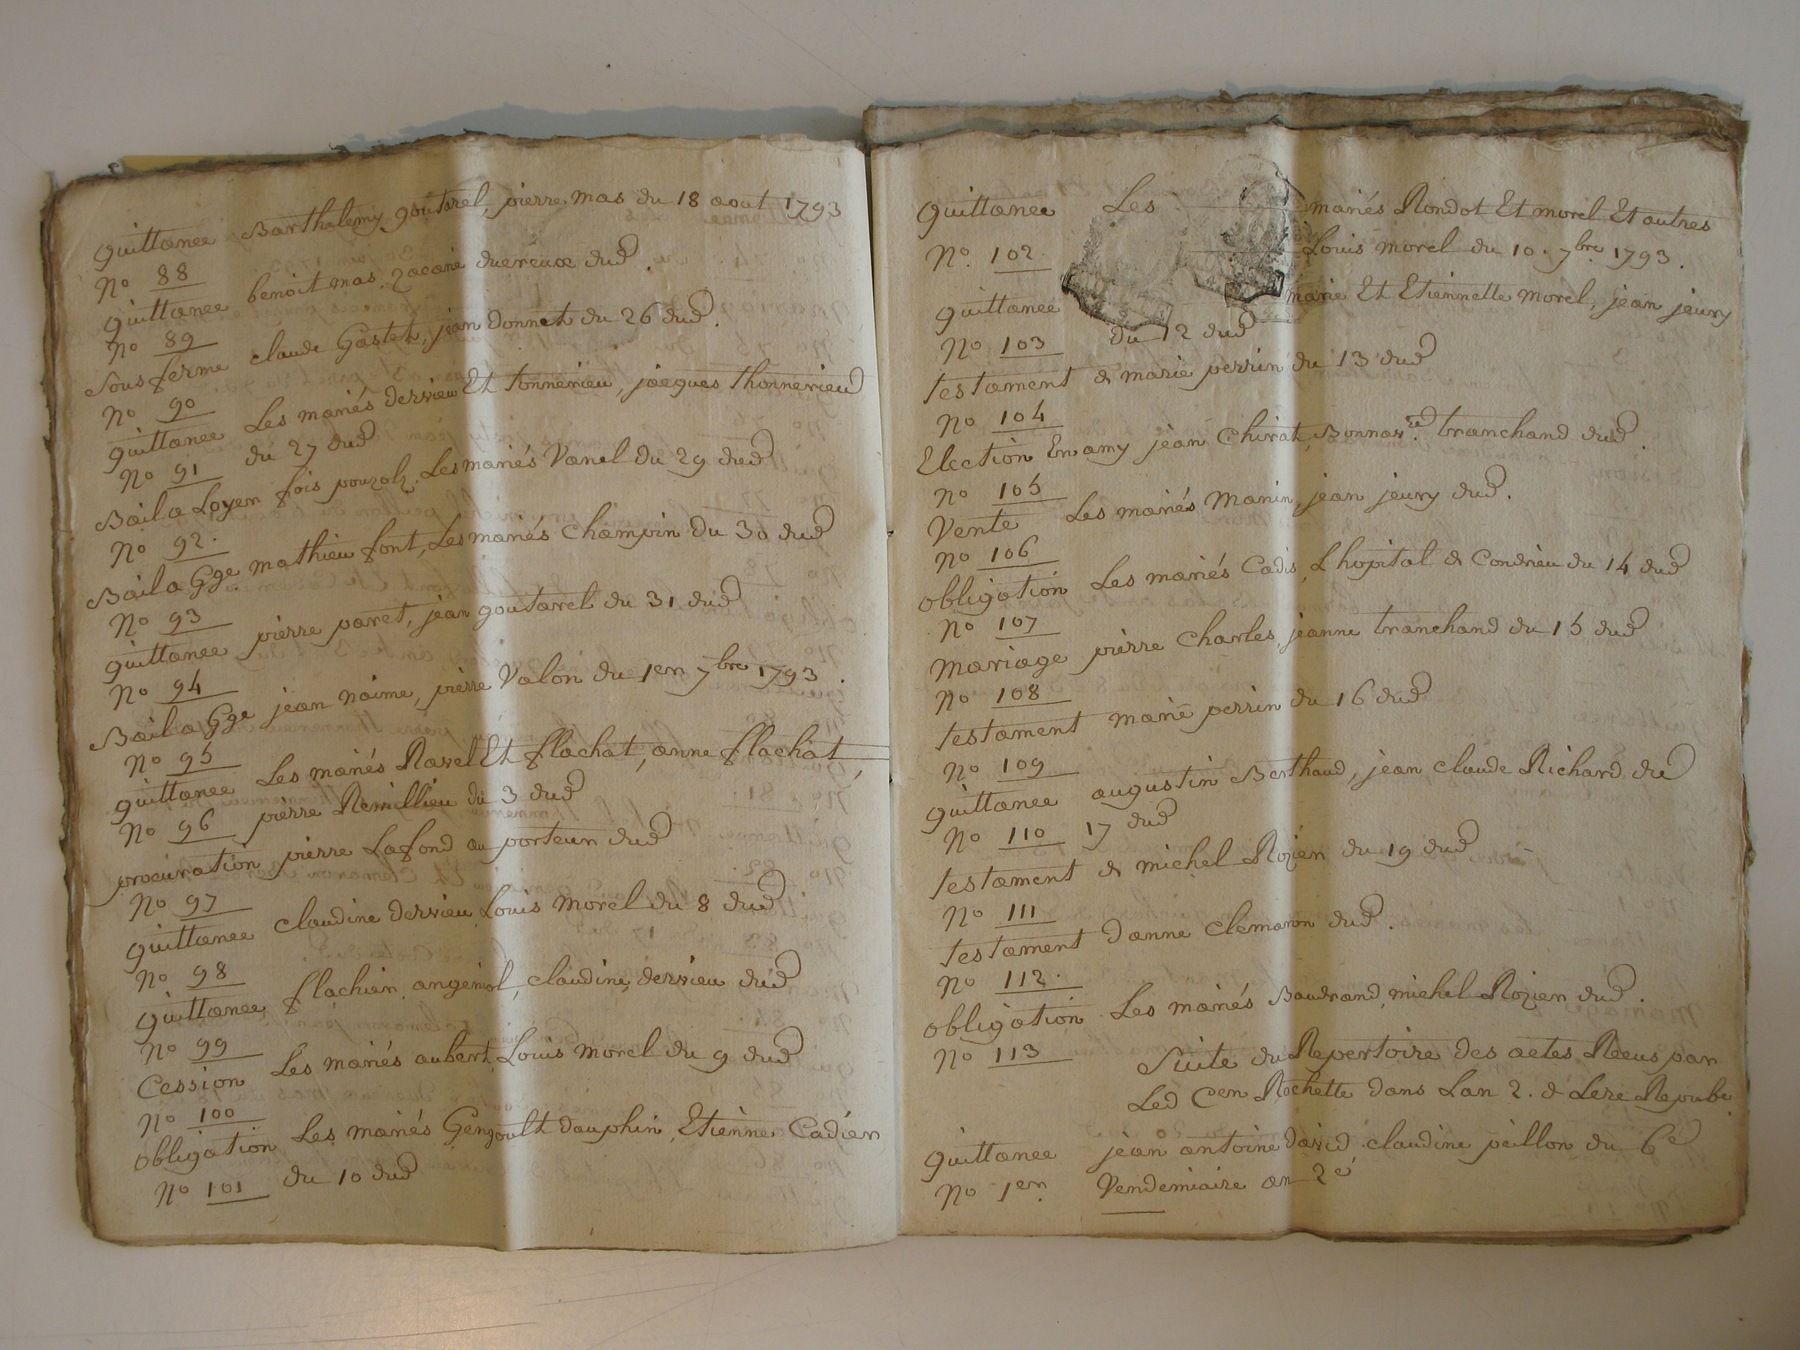 quittance Barthelemy goutarel, pierre mas du 18 aout 1793
No 88
quittance benoit mas, zacarie ducreux dud.
No 89
Sous ferme claude Gastet, jean Donnet du 26 dud.
No 90
quittance Les mariés dervieu Et tonnerieu, jacques thonnerieu
No 91 du 27 dud
Bail a Loyer fois pouzolz, Les mariés Vanel du 29 dud
No 92.
Bail a Gge mathieu font, Les mariés Champin du 30 dud
No 93
quittance pierre paret, jean goutarel du 31 dud
No 94
Bail a Gge jean naime, pierre Valon du 1er 7bre 1793.
No 95
quittance Les mariés Ravel Et flachat, anne flachat,
No 96 pierre Remillieu du 3 dud
procuration pierre Lafond au porteur dud
No 97
quittance claudine dervieu Louis morel du 8 dud
No 98
quittance flachier, angeniol, claudine dervieu dud
No 99
Cession Les mariés aubert, Louis morel du 9 dud
No 100
obligation Les mariés Gengoult dauphin, Etienne Cadier
No 101 du 10 dud
quittance Les mariés Rondot Et morel Et autres
No 102. Louis morel du 10. 7bre 1793.
quittance marie Et Etiennette morel, jean jeury
No 103 du 12 dud
testament de marie perrin du 13 dud
No 104
Election En amy jean Chirat, tranchand dud.
No 105
Vente Les mariés Manin, jean jeury dud.
No 106
obligation Les mariés Cadis, L'hopital de Condrieu du 14 dud
No 107
mariage pierre Charles, jeanne tranchand du 15 dud
No 108
testament marie perrin du 16 dud
No 109
quittance augustin Berthaud, jean claude Richard du
No 110 17 dud
testament de michel Rozier du 19 dud
No 111
testament d'anne clemaron dud.
No 112.
obligation Les mariés Baudrand, michel Rozier dud.
No 113 Suite du Repertoire des actes Receus par
Led Cen Rochette dans Lan 2. de Lere Repube
quittance jean antoine david, claudine peillon du 6e
No 1er. Vendemiaire an 2e